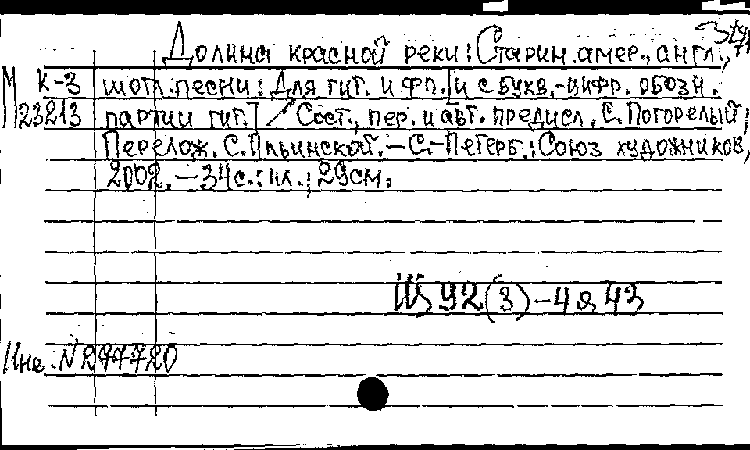 Долина красной реки: Старин. амер., англ.,
М К-3 шотл. песни: Для гит. и фп. [и с букв.-цифр. обозн.
23213 партии гит.] / Сост., пер. и авт. предисл. С. Погорелый;
Перелож. С. Ильинской. – С.-Петерб.: Союз художников,
2002. – 34 с.: ил.; 29 см.
Щ 92(3)-4я43
Инв. N